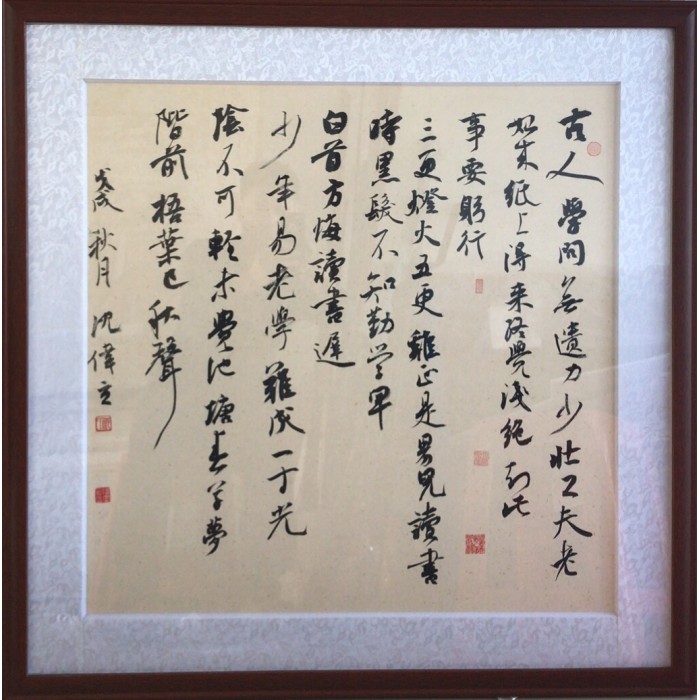 古人學问無遺力少壯工夫老
始成纸上得来终覺淺絶知此
事要躬行
三更燈火五更雞正是男兒讀書
時黑髮不知勤学早
白首方悔讀書遲
少年易老學難成一寸光
陰不可輕未覺池塘春草夢
階前梧葉已秋聲
戊戌秋月沈偉立